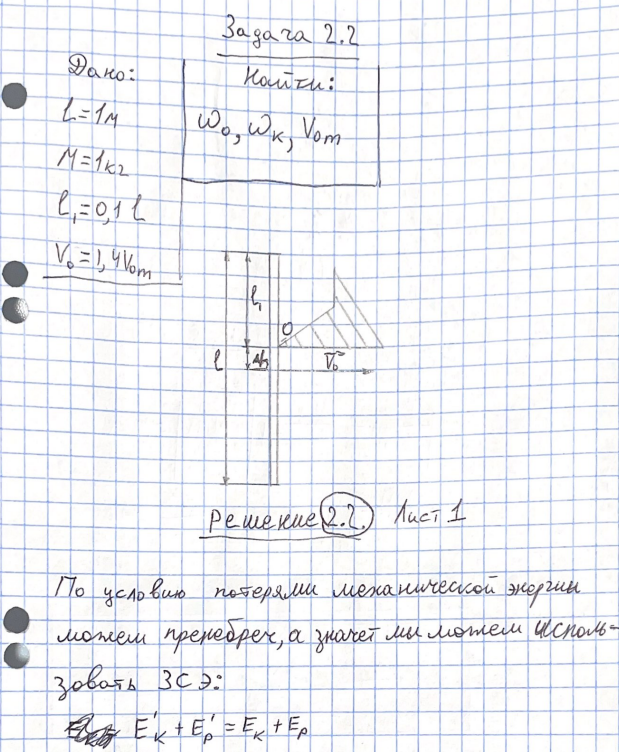 Задача 2.2
Дано:
Найти:
L=1м
ω₀, ωк, V₀m
M=1кг
l₁=0,1 l
V₀=1,4V₀m
l₁
O
l
Δh
V₀
Решение 2.2. Лист 1
По условию потерями механической энергии
можем пренебреч, а значет мы можем исполь-
зовать ЗСЭ:
E'к + E'р = Eк + Eр